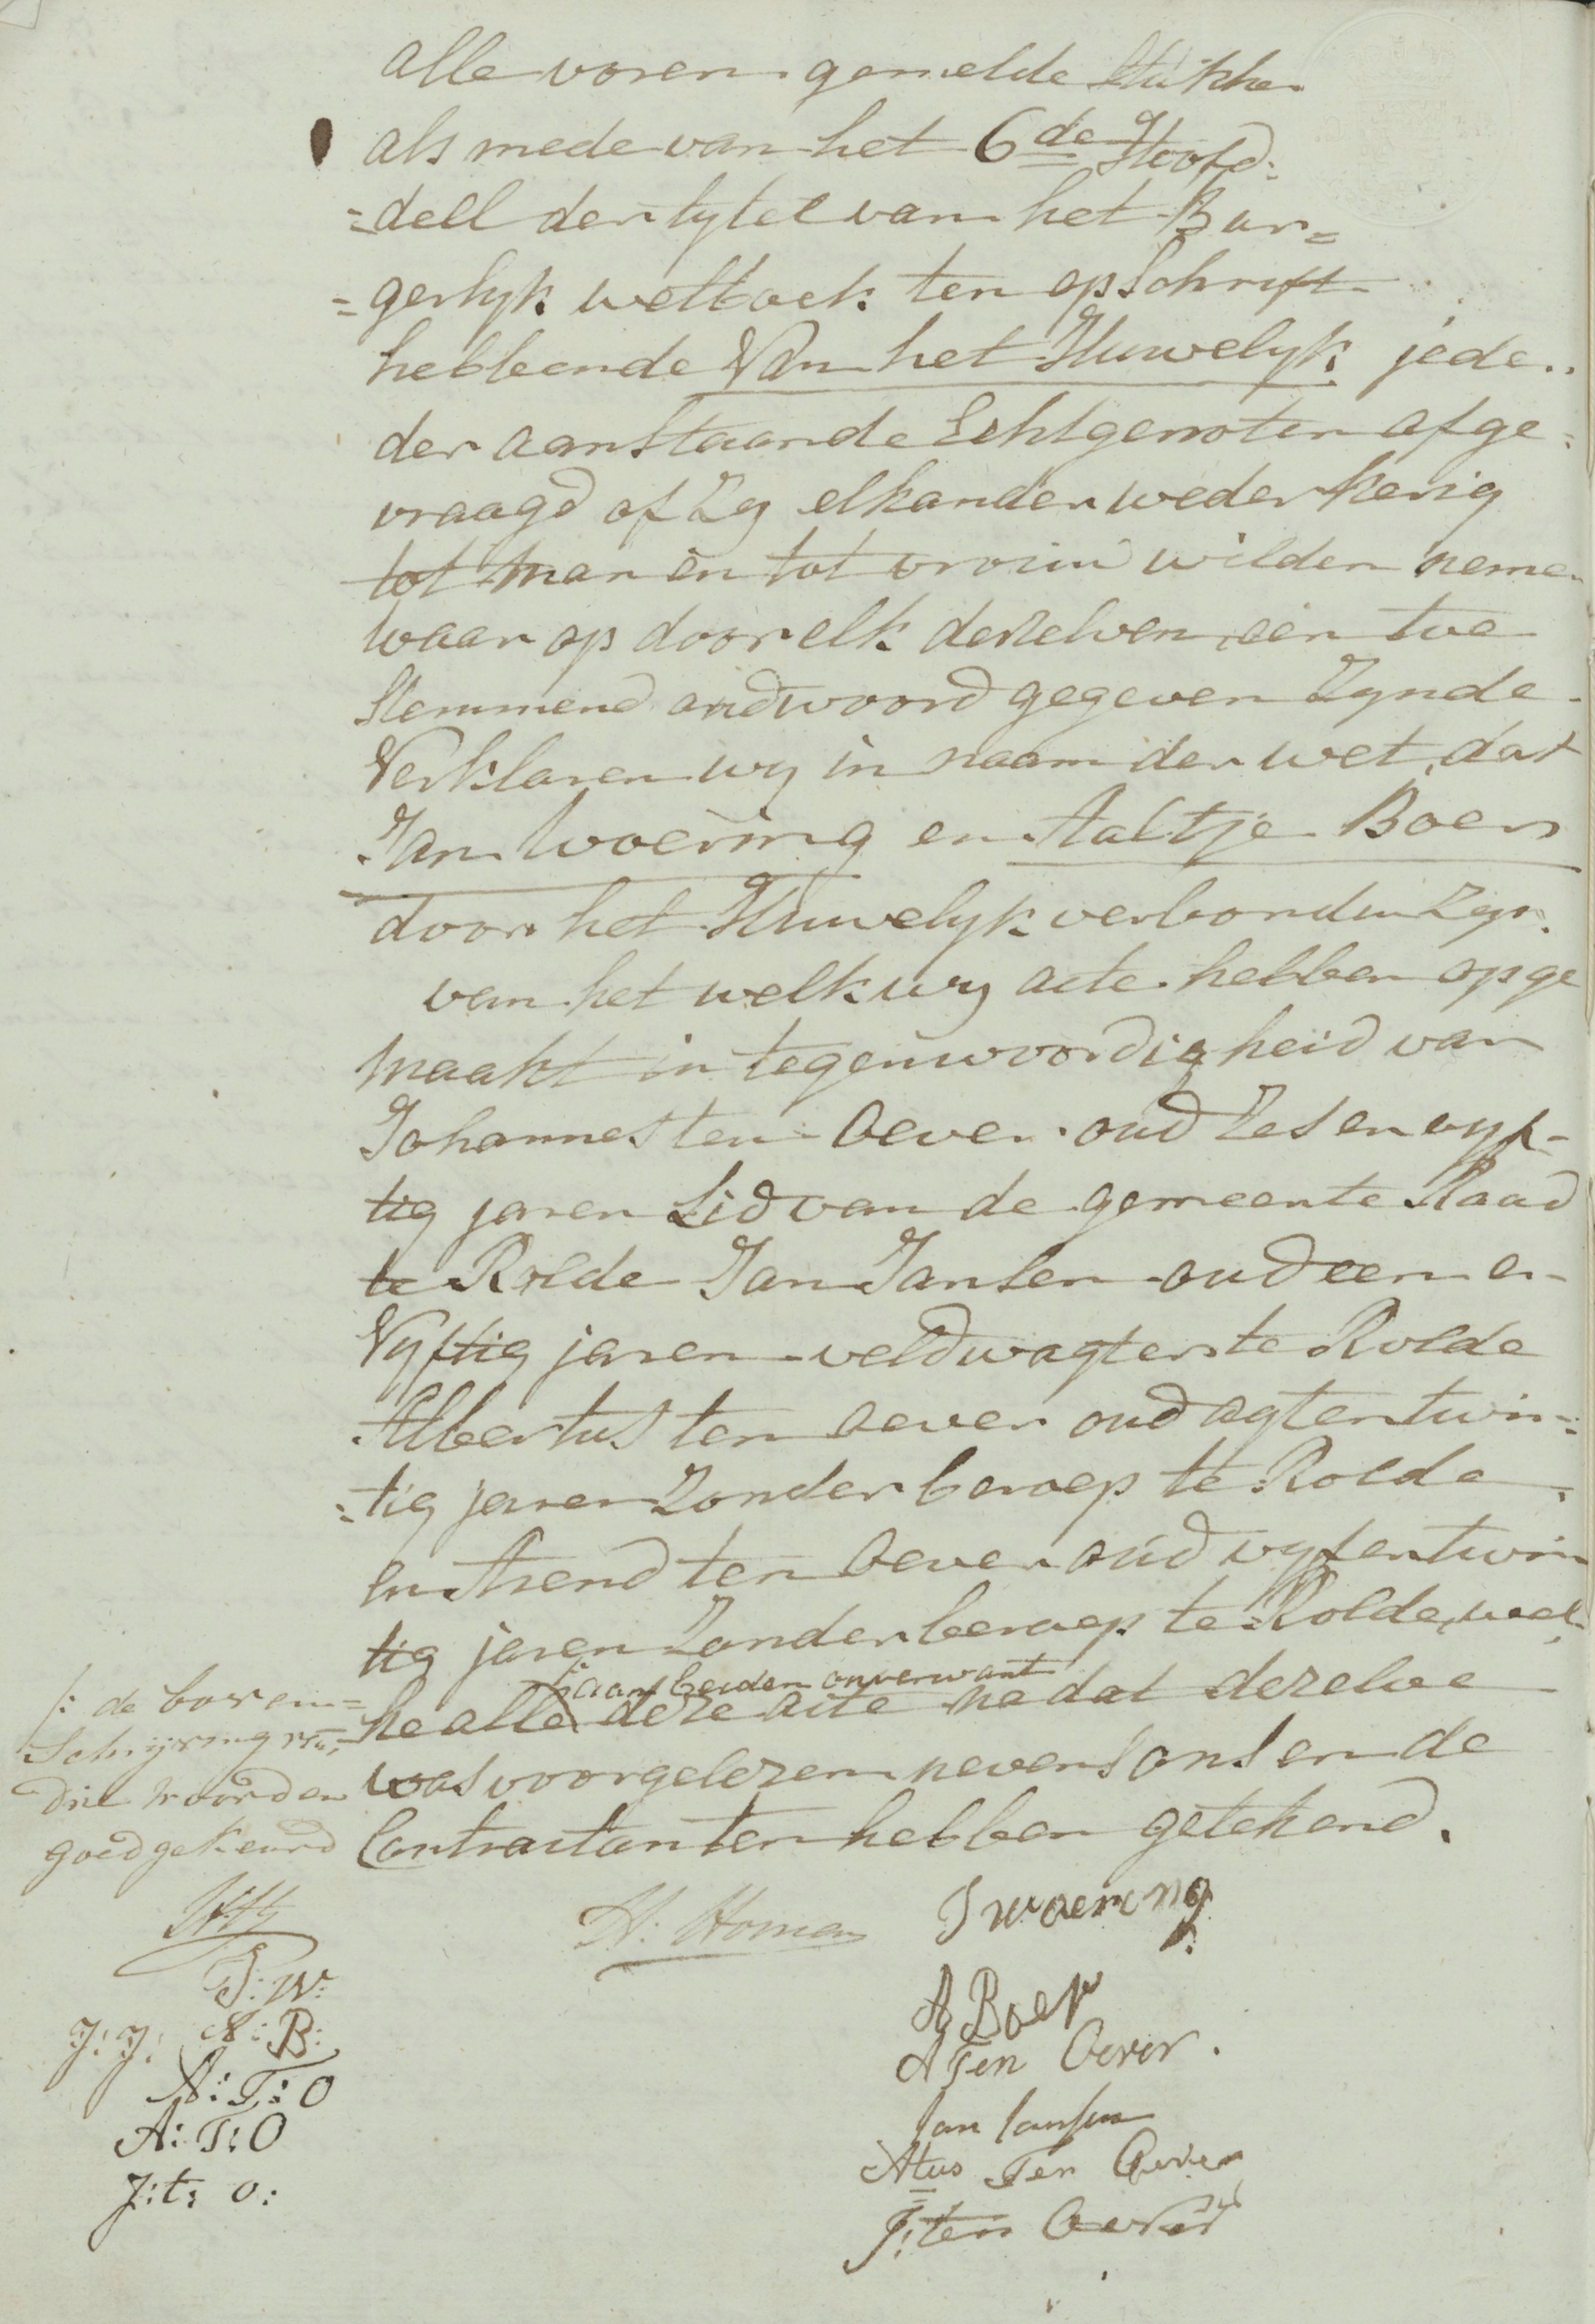 alle voren gemelde Stukken
als mede van het 6de Hoofd=
=deel der tytel van het Bur=
=gerlyk wetboek ten opschrift
hebbende Van het Huwelyk jede..
der aanstaande Echtgenoten afge=
vraagd of Zy elkander wederkerig
tot man en tot vrouw wilden neme
waar op door elk derzelven een toe
stemmend andwoord gegeven Zynde
Verklaren wy in naam der wet, dat
Jan Woering en Aaltje Boer
door het Huwelyk verbonden Zyn.
van het welk wy acte hebben opge
maakt in tegenwoordigheid van
Johannes ten Oever oud Zes en vyf-
tig jaren Lid van de gemeente Raad
te Rolde Jan Jansen oud een en
Vyftig jaren veldwagter te Rolde
Albertus ten Oever oud agtentwin=
=tig jaren Zonder beroep te Rolde
en Arend ten Oever oud vyfentwin
tig jaren Zonder beroep te Rolde, wel
/: aan beiden onverwant
ke alle deze acte na dat dezelve
was voorgelezen nevens ons en de
Contractanten hebben getekend.
/: de boven=
Schryving van
drie woorden
goedgekeurd
HH
J: W:
J: J: A: B:
A: T: O
A: T: O
J: t: o:
H: Homan
J woering
A Boer
A Ten Oever.
Jan Jansen
Atus Ten Oever
J: ten Oever